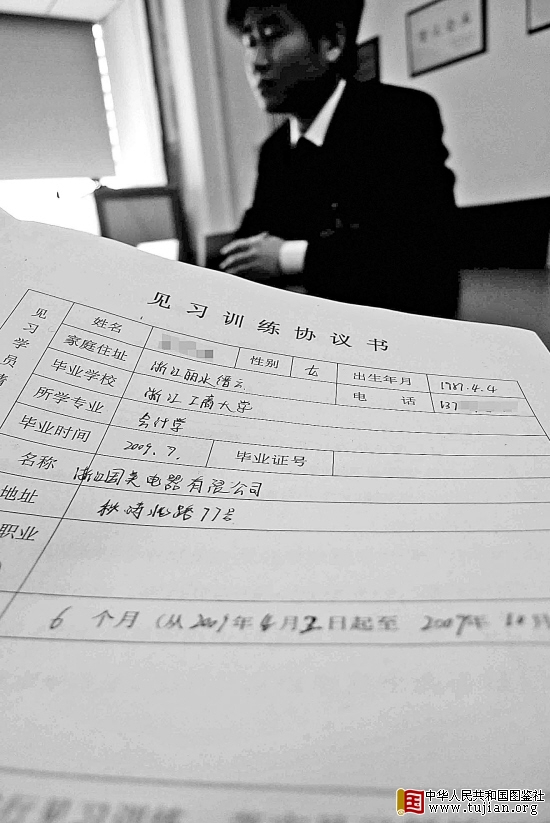 见习训练协议书
见习学员
姓名 性别 女 出生年月 1987.4.4
家庭住址 浙江丽水缙云 电话 137
毕业学校 浙江工商大学
所学专业 会计学
毕业时间 2009.7. 毕业证号
名称 浙江国美电器有限公司
地址 秋涛北路77号
职业
6 个月(从2009年4月2日起至 2009年10月
中华人民共和国图鉴社
www.tujian.org